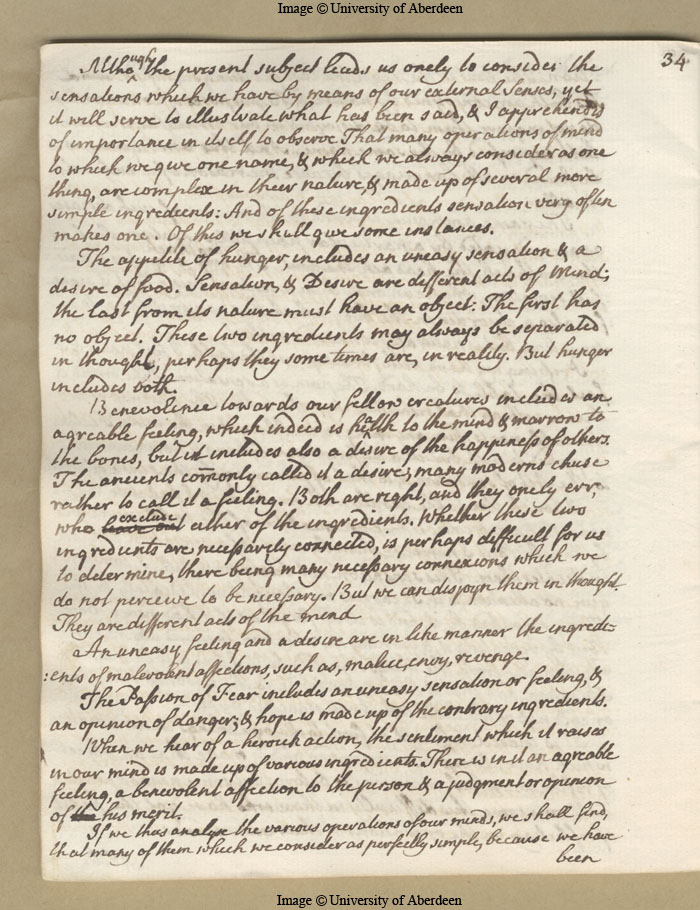 Image © University of Aberdeen
34
Although the present subject leads us onely to consider the
sensations which we have by means of our external senses, yet
it will serve to illustrate what has been said, & I apprehend is
of importance in itself to observe That many operations of mind
to which we give one name, & which we always consider as one
thing, are complex in their nature, & made up of several more
simple ingredients: And of these ingredients sensation very often
makes one. Of this we shall give some instances.
The appetite of hunger, includes an uneasy sensation & a
desire of food. Sensation, & Desire are different acts of Mind;
the last from its nature must have an object. The first has
no object. These two ingredients may always be separated
in thought, perhaps they some times are, in reality. But hunger
includes both.
Benevolence towards our fellow creatures includes an
agreable feeling, which indeed is health to the mind & marrow to
the bones, but it includes also a desire of the happiness of others.
The ancients comonly called it a desire, many moderns chuse
rather to call it a feeling. Both are right, and they onely err,
who leave out exclude either of the ingredients. Whether these two
ingredients are necessarely connected, is perhaps difficult for us
to determine, there being many necessary connexions which we
do not perceive to be necessary. But we can disjoyn them in thought.
They are different acts of the mind
An uneasy feeling and a desire are in like manner the ingredi-
:ents of malevolent affections, such as, malice, envy, revenge.
The Passion of Fear includes an uneasy sensation or feeling, &
an opinion of danger; & hope is made up of the contrary ingredients.
When we hear of a heroick action, the sentiment which it raises
in our mind is made up of various ingredients. There is in it an agreable
feeling, a benevolent affection to the person & a judgment or opinion
of the his merit.
If we thus analyse the various operations of our minds, we shall find,
that many of them which we consider as perfectly simple, because we have
been
Image © University of Aberdeen